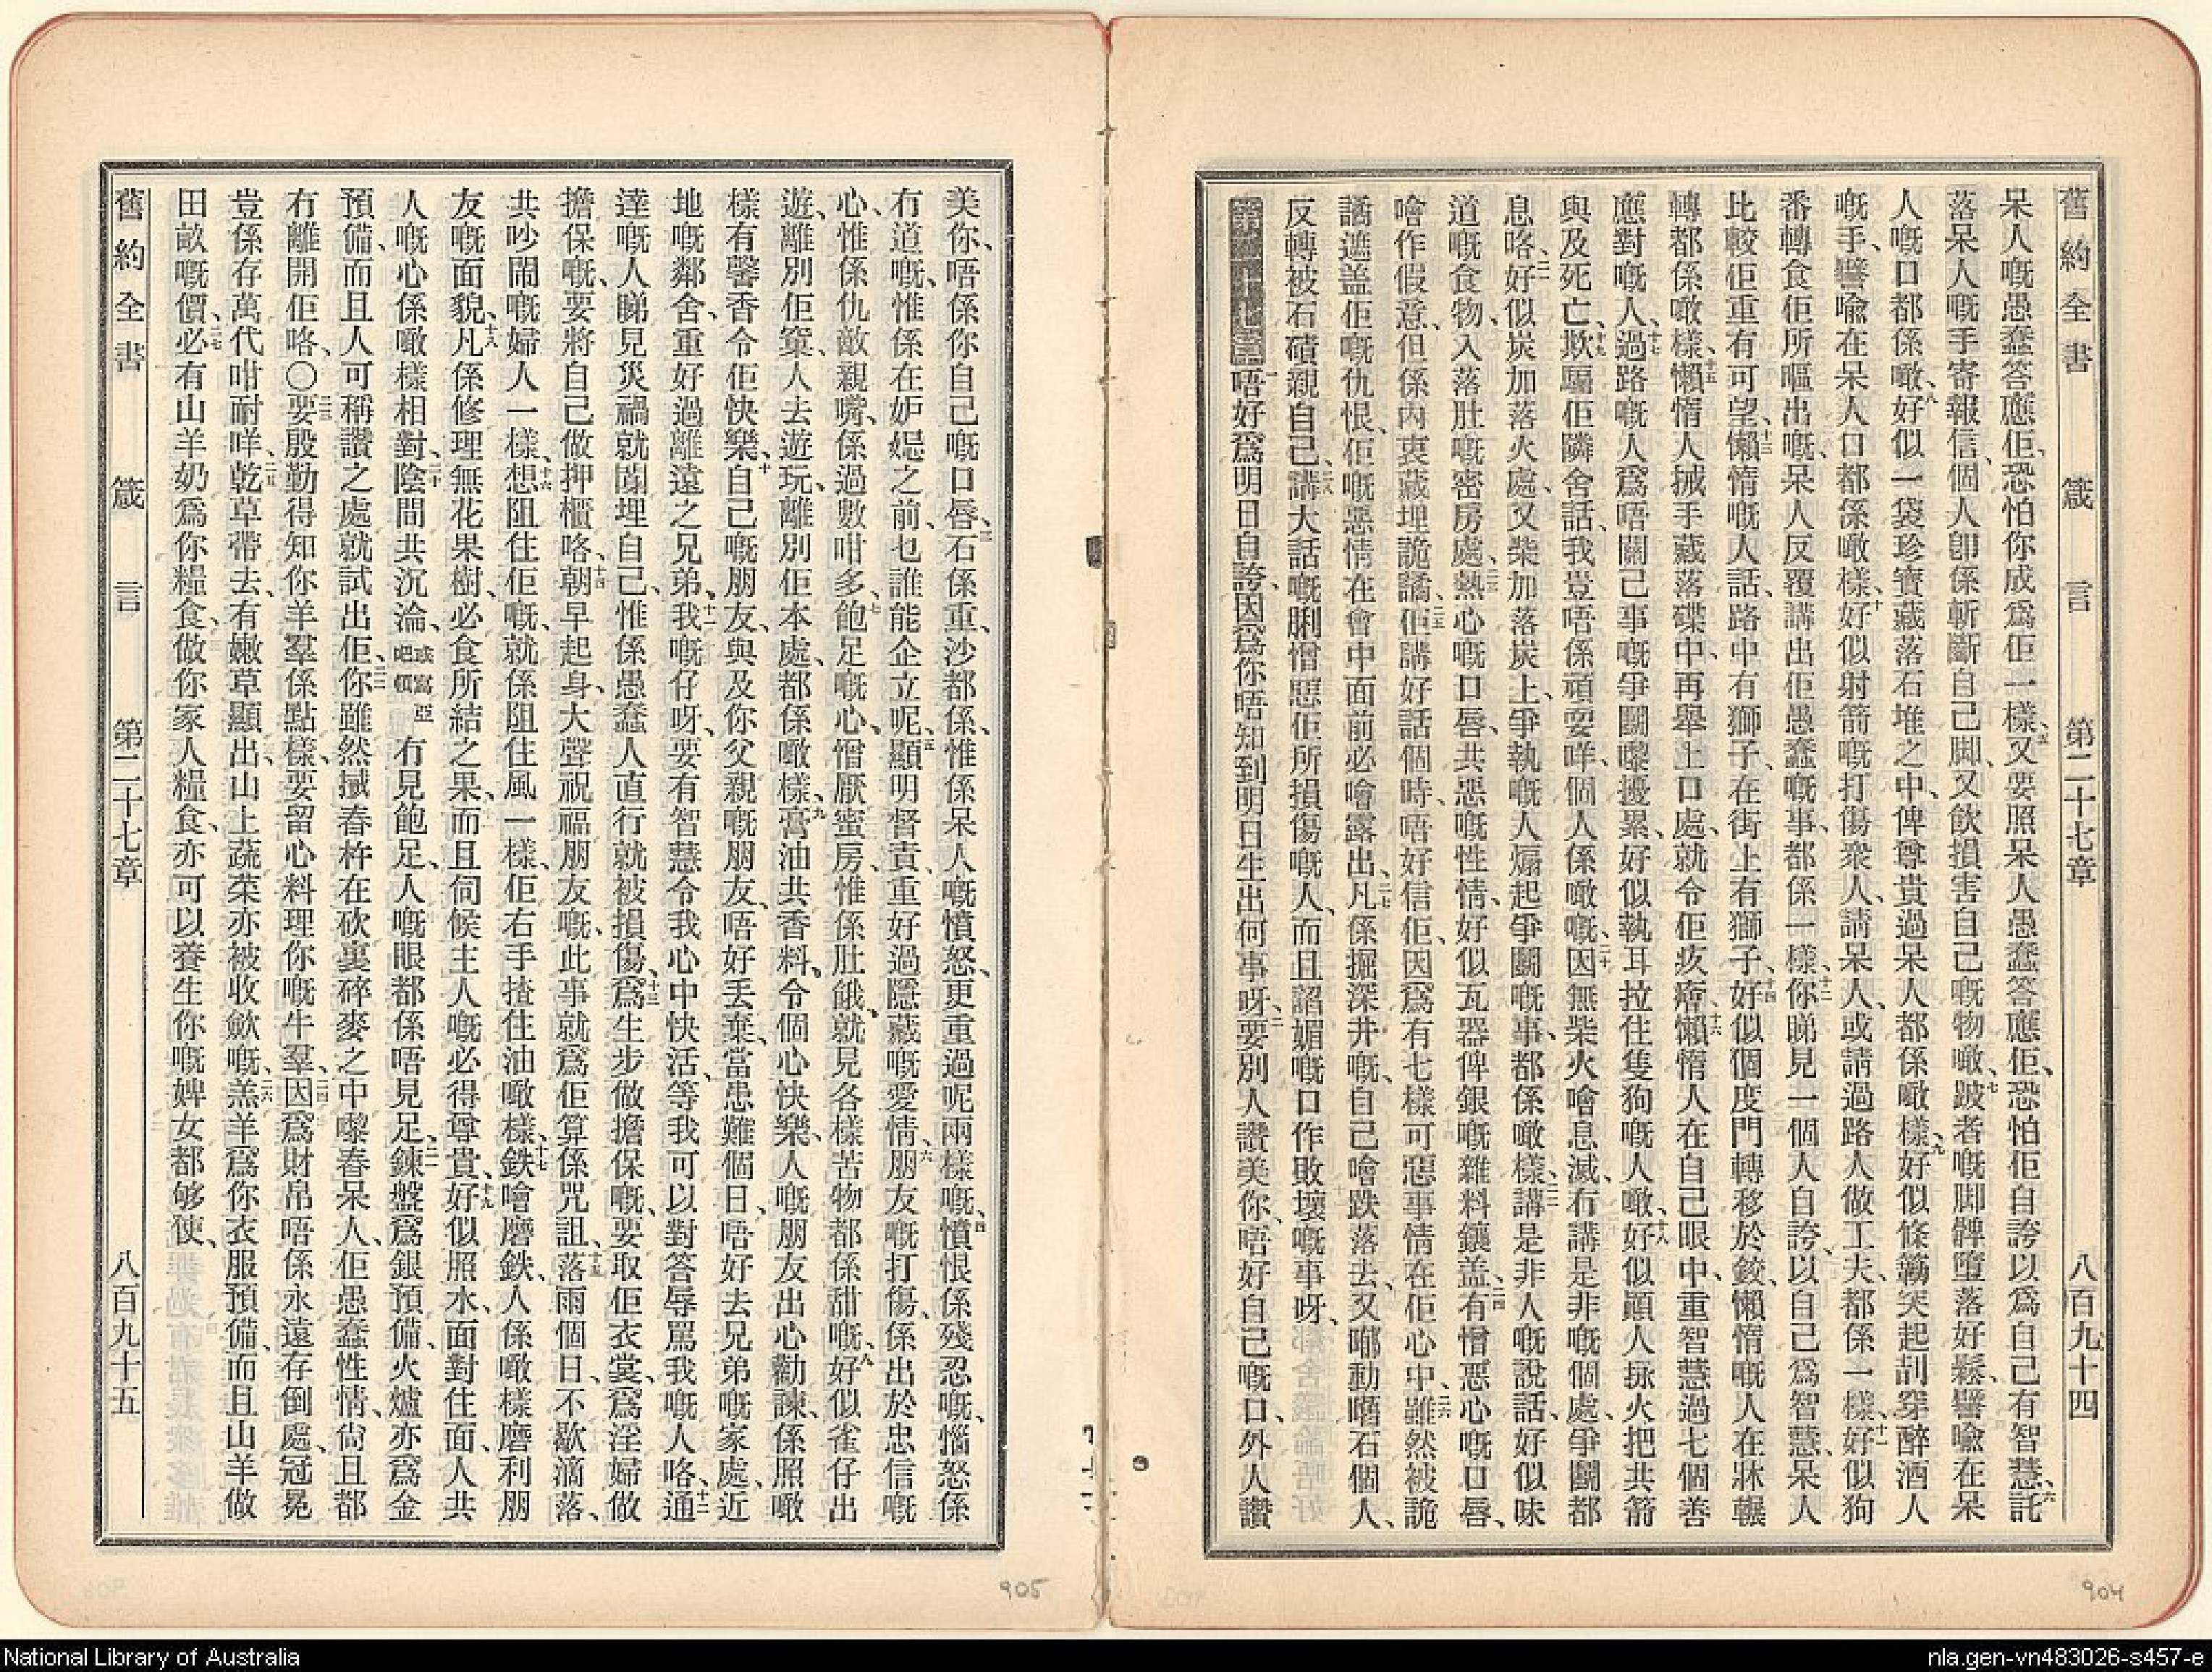 舊約全書 箴言 第二十七章 八百九十四
呆人嘅愚蠢答應佢、恐怕你成爲佢一樣、五又要照呆人愚蠢答應佢、恐怕佢自誇以爲自己有智慧、六託
落呆人嘅手寄報信、個人卽係斬斷自己脚、又飲損害自己嘅物噉、七跛者嘅脚髀墮落好鬆、譬喩在呆
人嘅口都係噉、八好似一袋珍寶藏落石堆之中、俾尊貴過呆人都係噉樣、九好似條簕突起刮穿醉酒人
嘅手、譬喩在呆人口都係噉樣、十好似射箭嘅打傷衆人、請呆人、或請過路人做工夫、都係一樣、十一好似狗
番轉食佢所嘔出嘅、呆人反覆講出佢愚蠢嘅事、都係一樣、十二你睇見一個人自誇、以自己爲智慧、呆人
比較佢重有可望、十三懶惰嘅人話、路中有獅子、在街上有獅子、十四好似個度門轉移於鉸、懶惰嘅人在牀輾
轉都係噉樣、十五懶惰人搣手藏落碟中、再舉上口處、就令佢疚癐、十六懶惰人在自己眼中、重智慧過七個善
應對嘅人、十七過路嘅人爲唔關己事嘅爭鬭嚟擾累、好似執耳拉住隻狗嘅人噉、十八好似顚人捈火把共箭
與及死亡、十九欺騙佢隣舍話、我豈唔係頑耍咩、個人係噉嘅、二十因無柴火噲息滅、冇講是非嘅個處、爭鬭都
息咯、二一好似炭加落火處、又柴加落炭上、爭執嘅人煽起爭鬭嘅事、都係噉樣、二二講是非人嘅說話、好似味
道嘅食物、入落肚嘅密房處、二三熱心嘅口唇、共惡嘅性情、好似瓦器俾銀嘅雜料鑲盖、二四有憎惡心嘅口唇、
噲作假意、但係內衷藏埋詭譎、二五佢講好話個時、唔好信佢、因爲有七樣可惡事情在佢心中、二六雖然被詭
譎遮盖佢嘅仇恨、佢嘅惡情在會中面前必噲露出、二七凡係掘深井嘅、自己噲跌落去、又𨅝動嚿石個人、
反轉被石磧親自己、二八講大話嘅脷憎惡佢所損傷嘅人、而且諂媚嘅口作敗壞嘅事呀、
第二十七章一唔好爲明日自誇、因爲你唔知到明日生出何事呀、二要別人讚美你、唔好自己嘅口、外人讚
904
美你、唔係你自己嘅口唇、三石係重、沙都係、惟係呆人嘅憤怒、更重過呢兩樣嘅、四憤恨係殘忍嘅、惱怒係
有道嘅、惟係在妒忌之前、乜誰能企立呢、五顯明督責、重好過隱藏嘅愛情、六朋友嘅打傷、係出於忠信嘅
心、惟係仇敵親嘴、係過數咁多、七飽足嘅心、憎厭蜜房、惟係肚餓、就見各樣苦物都係甜嘅、八好似雀仔出
遊、離別佢窠、人去遊玩、離別佢本處、都係噉樣、九膏油共香料、令個心快樂、人嘅朋友出心勸諫、係照噉
樣有馨香令佢快樂、十自己嘅朋友、與及你父親嘅朋友、唔好丢棄、當患難個日、唔好去兄弟嘅家處、近
地嘅鄰舍、重好過離遠之兄弟、十一我嘅仔呀、要有智慧令我心中快活、等我可以對答辱駡我嘅人咯、十二通
達嘅人睇見災禍就閶埋自己、惟係愚蠢人直行就被損傷、十三爲生步做擔保嘅、要取佢衣裳、爲淫婦做
擔保嘅、要將自己做押櫃咯、十四朝早起身、大聲祝福朋友嘅、此事就爲佢算係咒詛、十五落雨個日、不歇滴落、
共吵鬧嘅婦人一樣、十六想阻住佢嘅、就係阻住風一樣、佢右手揸住油噉樣、十七鉄噲磨鉄、人係噉樣磨利朋
友嘅面貌、十八凡係修理無花果樹、必食所結之果、而且伺候主人嘅必得尊貴、十九好似照水、面對住面、人共
人嘅心係噉樣相對、二十陰間共沉淪、或寫亞吧頓 冇見飽足、人嘅眼都係唔見足、二一鍊盤爲銀預備、火爐亦爲金
預備、而且人可稱讚之處就試出佢、二二你雖然搣舂杵在砍裏碎麥之中嚟舂呆人、佢愚蠢性情、尙且都
冇離開佢咯、〇二三要殷勤得知你羊羣係點樣、要留心料理你嘅牛羣、二四因爲財帛唔係永遠存倒處、冠冕
豈係存萬代咁耐咩、二五乾草帶去、有嫩草顯出、山上蔬菜亦被收歛嘅、二六羔羊爲你衣服預備、而且山羊做
田畝嘅價、二七必有山羊奶爲你糧食、做你家人糧食、亦可以養生你嘅婢女都够使、
舊約全書 箴言 第二十七章 八百九十五
905
National Library of Australia
nla.gen-vn483026-s457-e